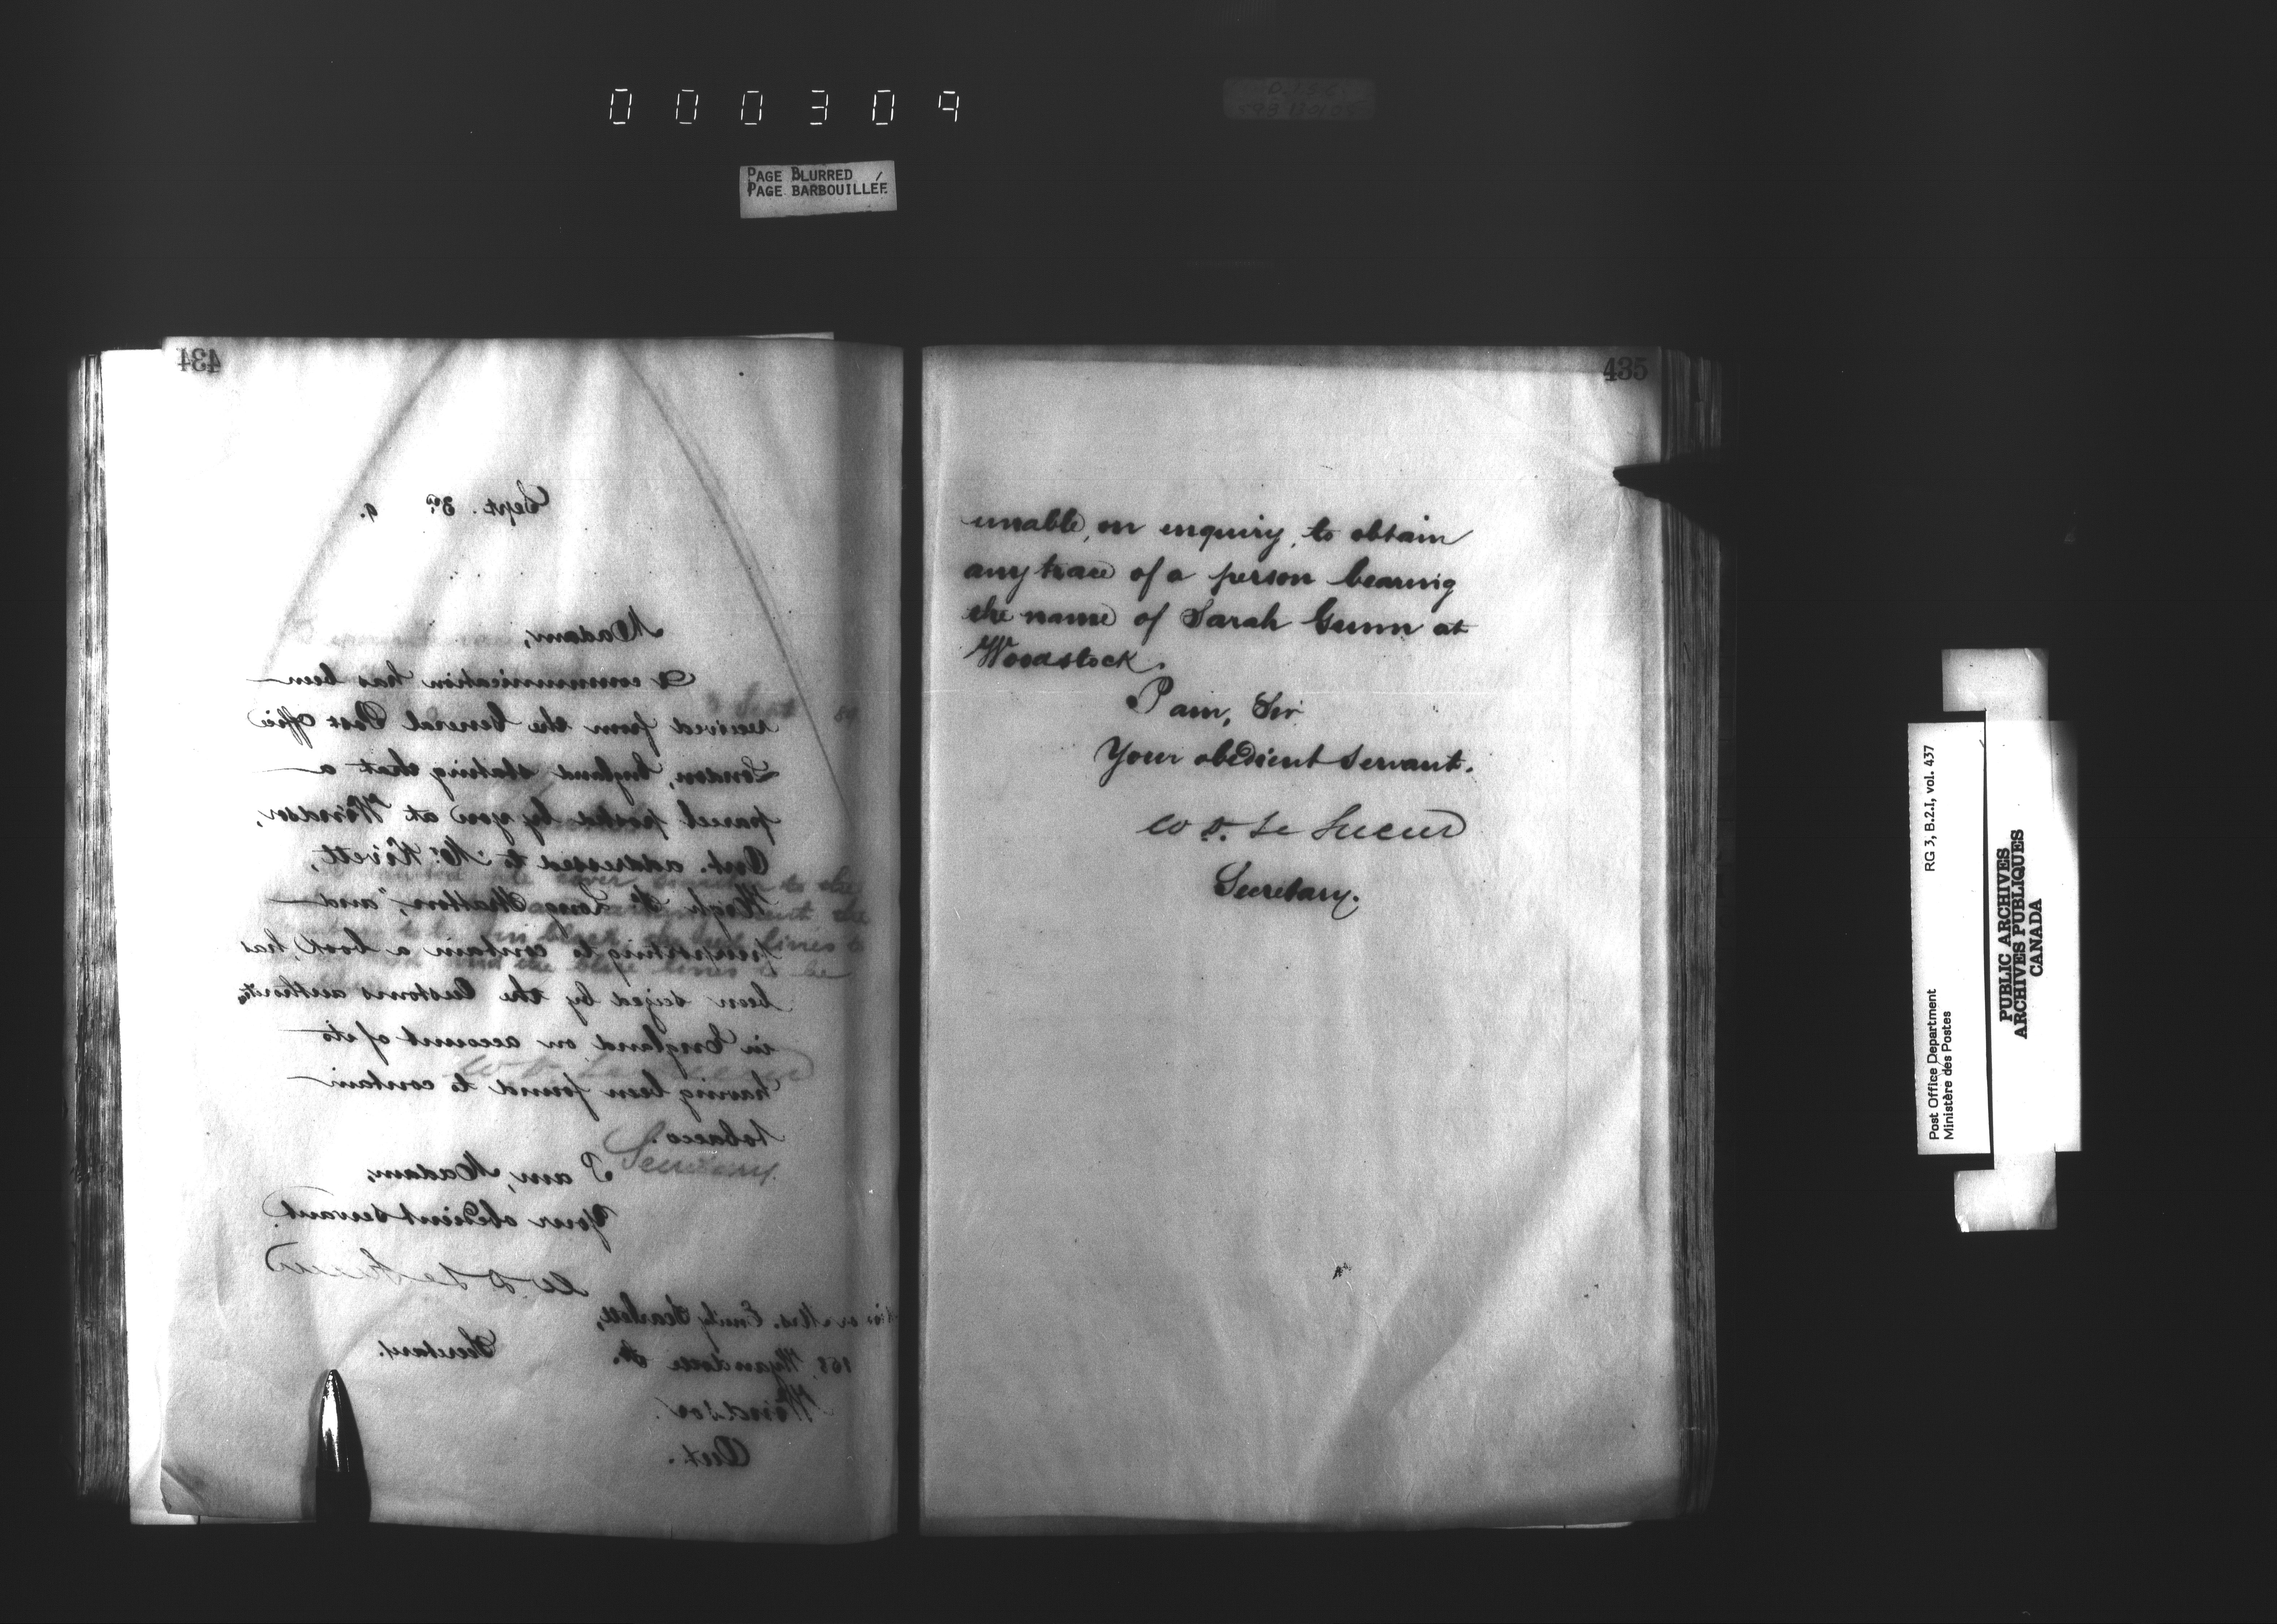 000309
PAGE BLURRED
PAGE BARBOUILLÉE
434
Sept. 3rd 9.
Madam,
A communication has been
received from the General Post Office
London, England stating that a
parcel posted by you at Windsor,
Ont. addressed to Mr. Kivett,
High St. Long Stratton, and
purporting to contain a book, has
been seized by the Customs authorities
in England on account of its
having been found to contain
tobacco.
I am, Madam,
Your obedient servant.
W D Le Sueur
Secretary.
Mrs. Emily Scarlett,
168, Wyandotte St.
Windsor.
Ont.
435
unable, on enquiry, to obtain
any trace of a person bearing
the name of Sarah Gunn at
Woodstock.
I am, Sir
Your obedient servant.
W D. Le Sueur
Secretary.
Post Office Department
Ministère des Postes
RG 3, B.2.I, vol. 437
PUBLIC ARCHIVES
ARCHIVES PUBLIQUES
CANADA